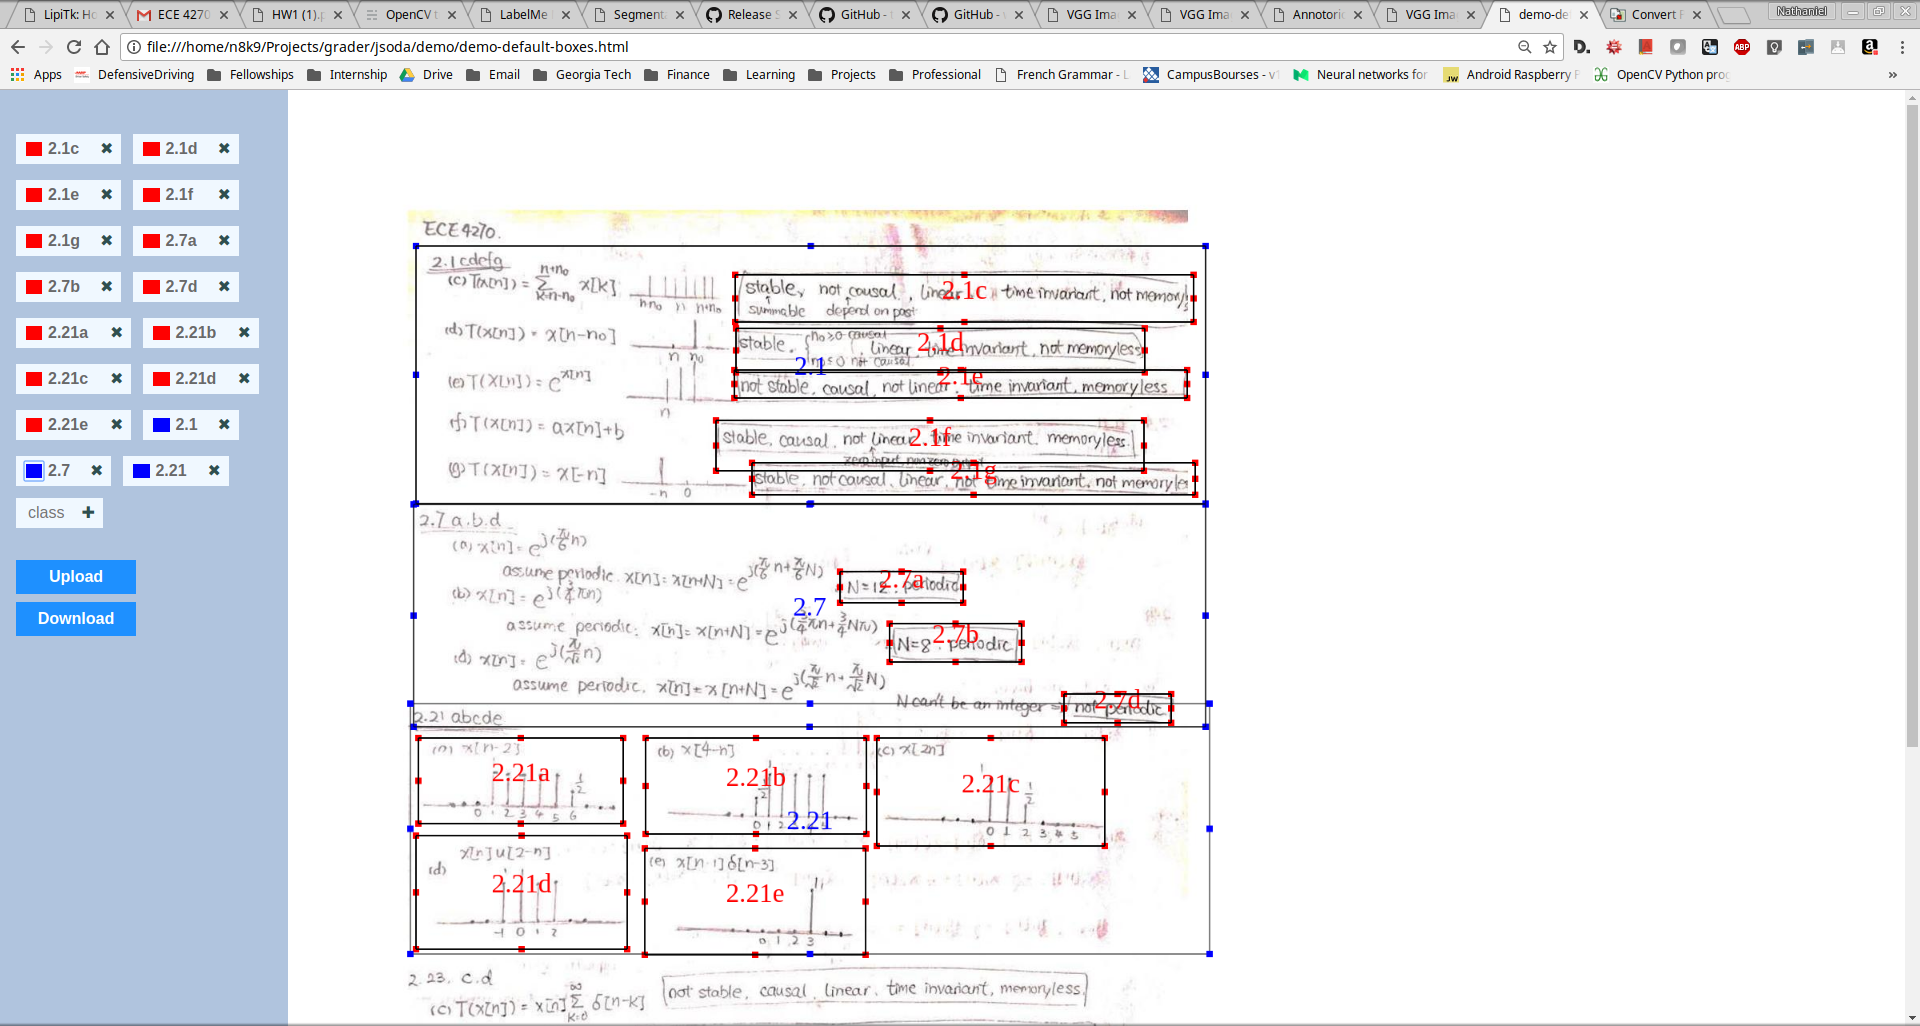 LipiTk: Ho
ECE 4270
HW1 (1).p
OpenCV t
LabelMe
Segment
Release S
GitHub -
GitHub -
VGG Ima
VGG Ima
Annotori
VGG Ima
demo-de
Convert F
Nathaniel
file:///home/n8k9/Projects/grader/jsoda/demo/demo-default-boxes.html
Apps
DefensiveDriving
Fellowships
Internship
Drive
Email
Georgia Tech
Finance
Learning
Projects
Professional
French Grammar - L
CampusBourses - v1
Neural networks for
Android Raspberry P
OpenCV Python prog
»
2.1c
2.1d
2.1e
2.1f
2.1g
2.7a
2.7b
2.7d
2.21a
2.21b
2.21c
2.21d
2.21e
2.1
2.7
2.21
class
Upload
Download
ECE4270.
2.1cdefg
(c) T(x[n]) = ∑ x[k] n+n₀ k=n-n₀
n-n₀ n n+n₀
stable, not causal, linear, time invariant, not memory
summable depend on post
2.1c
(d) T(x[n]) = x[n-n₀]
n n₀
stable. { n₀≥0 causal n₀≤0 not causal , linear, time invariant, not memoryless
2.1d
2.1
(e) T(x[n]) = e^x[n]
n
not stable, causal, not linear, time invariant, memoryless
2.1e
(f) T(x[n]) = ax[n]+b
stable, causal, not linear, time invariant, memoryless.
zero input nonzero output
2.1f
(g) T(x[n]) = x[-n]
-n 0
stable, not causal, linear, not time invariant, not memoryles
2.1g
2.7 a.b.d
(a) x[n] = e^j(π/6 n)
assume periodic. x[n] = x[n+N] = e^j(π/6 n + π/6 N)
N=12. periodic
2.7a
(b) x[n] = e^j(3/4 πn)
2.7
assume periodic. x[n] = x[n+N] = e^j(3/4 πn + 3/4 Nπ)
N=8. periodic
2.7b
(d) x[n] = e^j(π/√2 n)
assume periodic. x[n] = x[n+N] = e^j(π/√2 n + π/√2 N)
N can't be an integer ⇒ not periodic
2.7d
2.21 abcde
(a) x[n-2]
2.21a
1/2
0 1 2 3 4 5 6
(b) x[4-n]
2.21b
1/2
0 1 2
2.21
(c) x[2n]
2.21c
1 1/2
0 1 2 3 4 5
(d) x[n]u[2-n]
2.21d
-1 0 1 2
(e) x[n-1]δ[n-3]
2.21e
1
0 1 2 3
2.23. c.d
(c) T(x[n]) = x[n] ∑ δ[n-k] ∞ k=0
not stable, causal, linear, time invariant, memoryless.